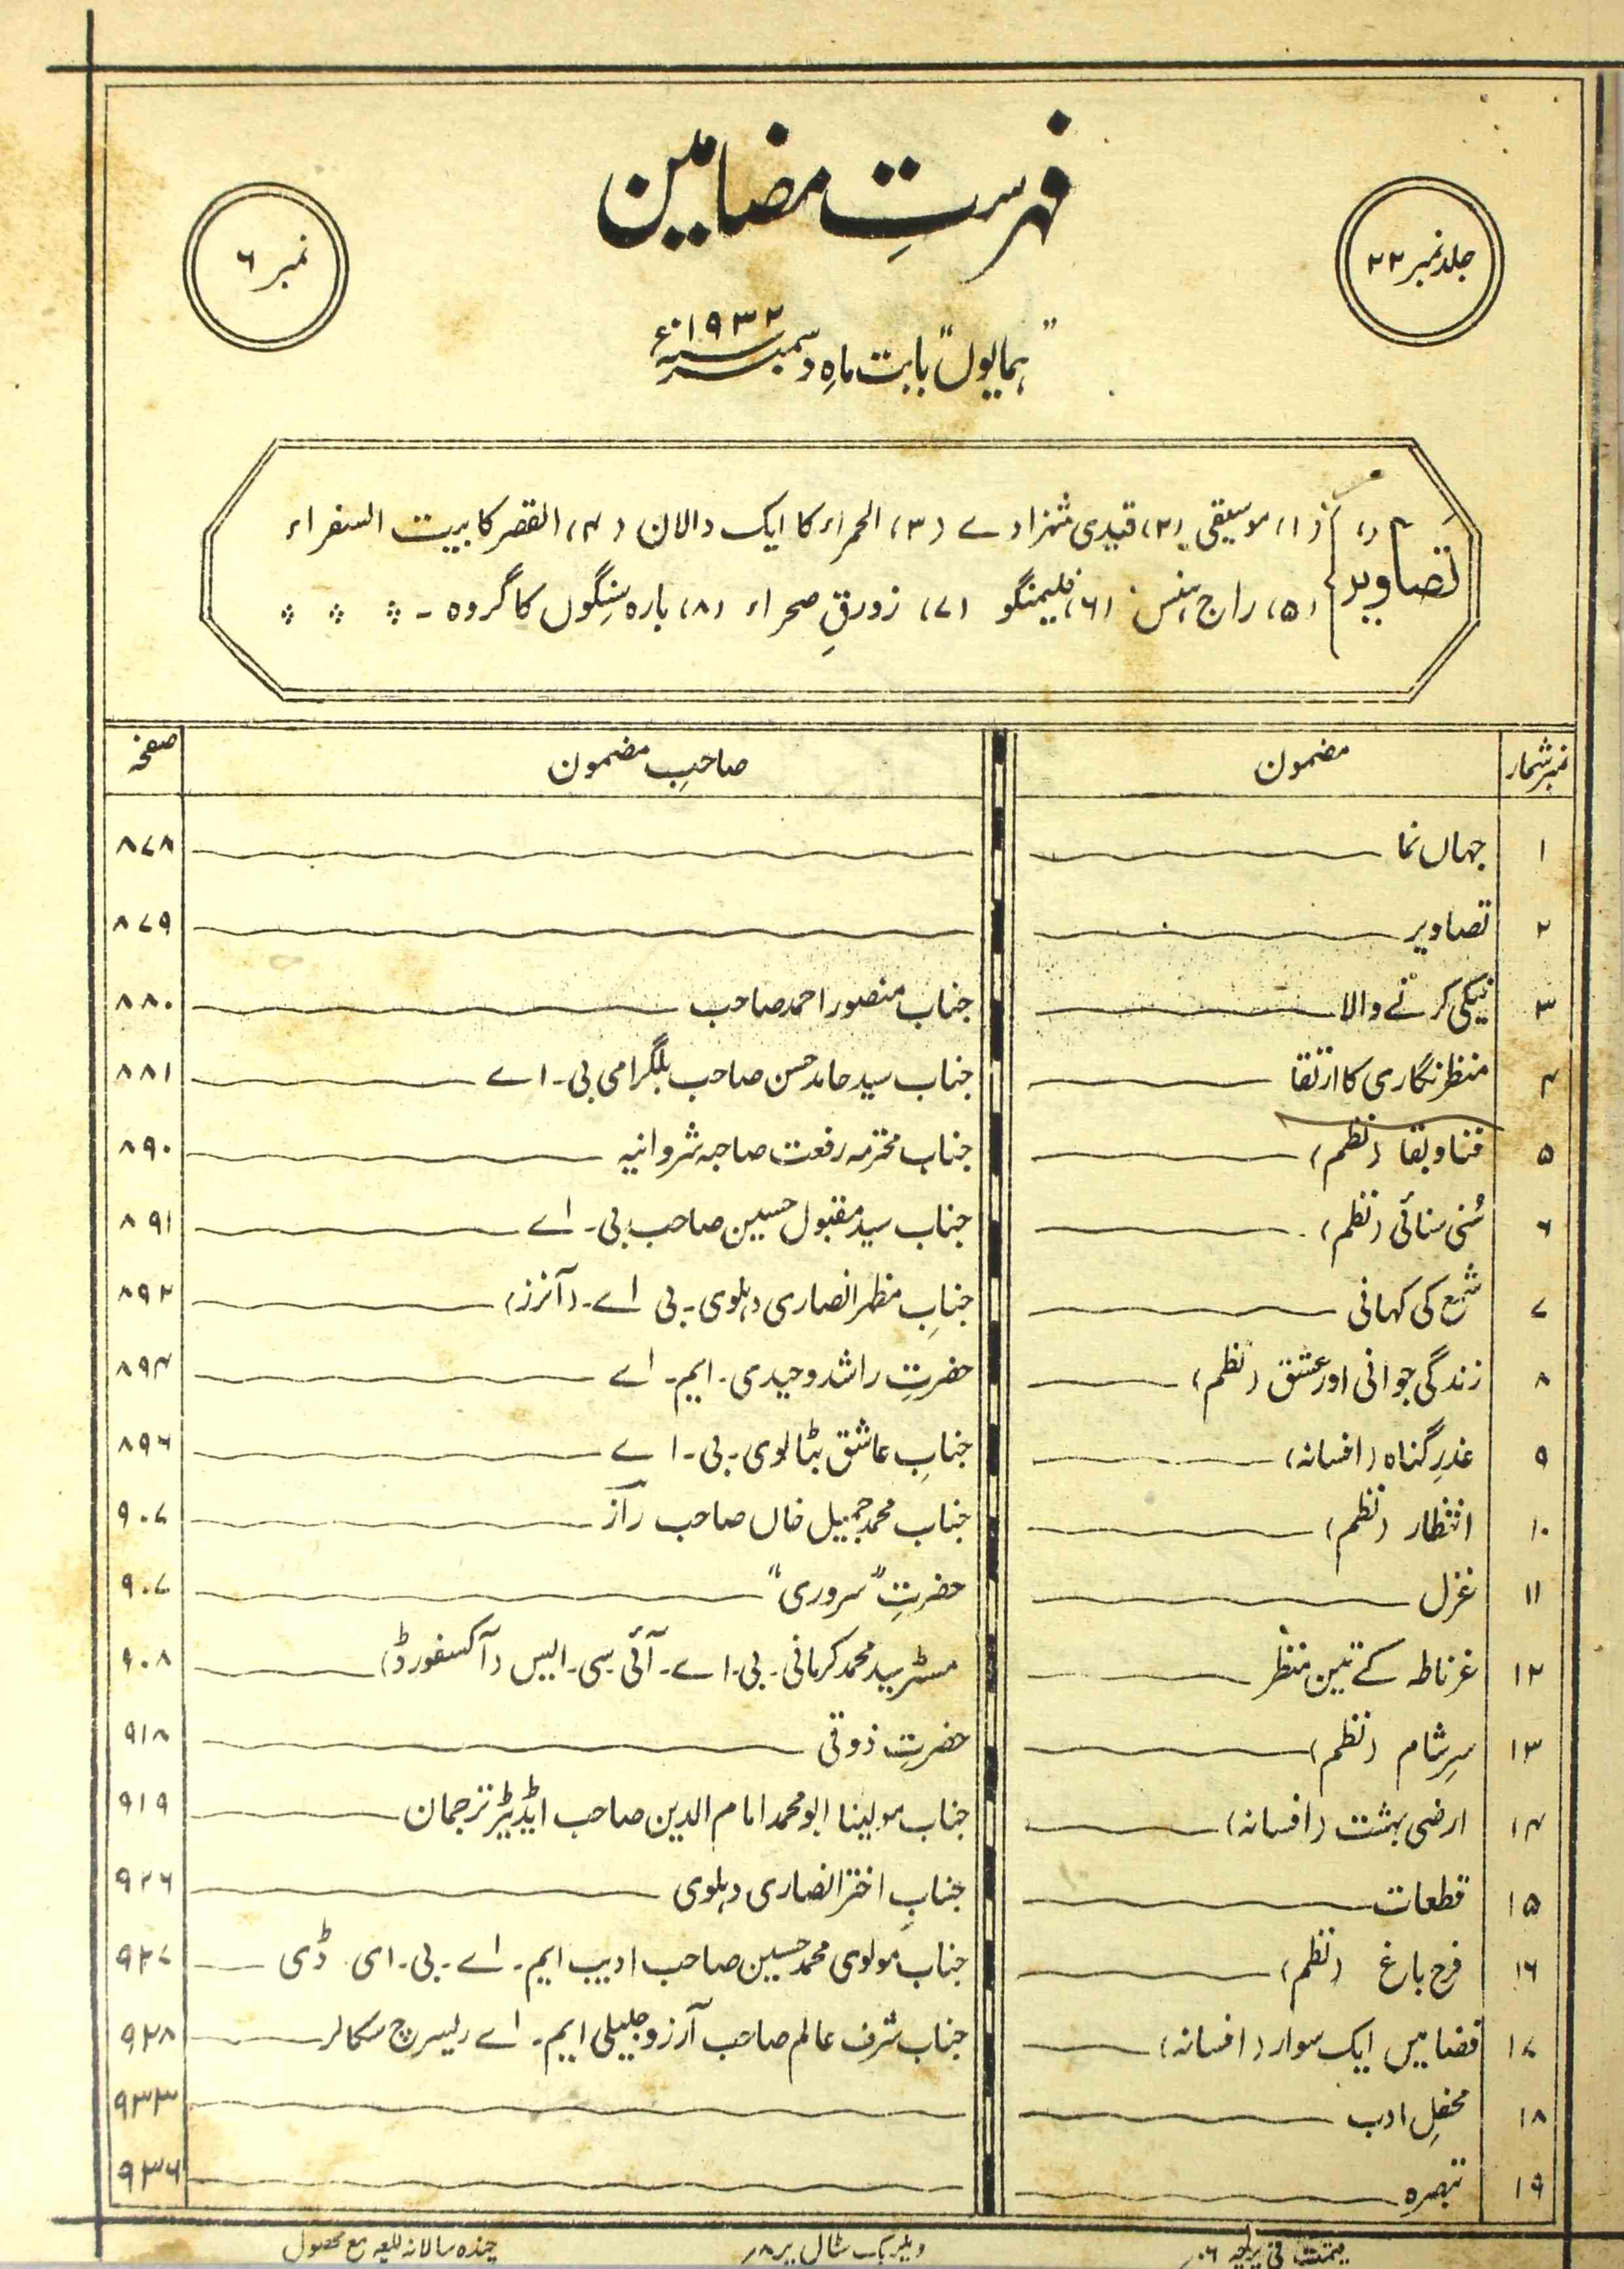 فہرستِ مضامین
جلد نمبر ۲۲
نمبر ۶
"ہمایوں" بابت ماہ دسمبر ۱۹۳۲ء
تصاویر
(۱) موسیقی (۲) قیدی شہزادے (۳) الحمراء کا ایک دالان (۴) القصر کا بیت السفراء
(۵) راج ہنس (۶) فلیمنگو (۷) زورقِ صحراء (۸) بارہ سنگوں کا گروہ ۔
نمبر شمار مضمون صاحبِ مضمون صفحہ
۱ جہاں نما ۸۷۸
۲ تصاویر ۸۷۹
۳ نیکی کرنے والا جناب منصور احمد صاحب ۸۸۰
۴ منظر نگاری کا ارتقا جناب سید حامد حسن صاحب بلگرامی بی۔ اے ۸۸۱
۵ فنا و بقا (نظم) جناب محترمہ رفعت صاحبہ شروانیہ ۸۹۰
۶ سُنی سنائی (نظم) جناب سید مقبول حسین صاحب بی۔ اے ۸۹۱
۷ شمع کی کہانی جنابِ مظہر انصاری دہلوی۔ بی اے۔ (آنرز) ۸۹۲
۸ زندگی جوانی اور عشق (نظم) حضرتِ راشد وحیدی۔ ایم۔ اے ۸۹۴
۹ عذرِ گناہ (افسانہ) جنابِ عاشق بٹالوی۔ بی۔ اے ۸۹۶
۱۰ انتظار (نظم) جناب محمد جمیل خاں صاحب راز ۹۰۷
۱۱ غزل حضرتِ "سروری" ۹۰۷
۱۲ غرناطہ کے تین منظر مسٹر سید محمد کرمانی۔ بی۔ اے۔ آئی۔ سی۔ ایس (آکسفورڈ) ۹۰۸
۱۳ سرِ شام (نظم) حضرتِ ذوقی ۹۱۸
۱۴ ارضی بہشت (افسانہ) جناب مولینا ابو محمد امام الدین صاحب ایڈیٹر ترجمان ۹۱۹
۱۵ قطعات جنابِ اختر انصاری دہلوی ۹۲۶
۱۶ فرح باغ (نظم) جناب مولوی محمد حسین صاحب ادیب ایم۔ اے۔ بی۔ ای۔ ڈی ۹۲۷
۱۷ فضا میں ایک سوار (افسانہ) جناب شرف عالم صاحب آرزو جلیلی ایم۔ اے ریسرچ سکالر ۹۲۸
۱۸ محفلِ ادب ۹۳۳
۱۹ تبصرہ ۹۳۶
قیمت فی پرچہ ۶؍ وہیلر بک سٹال پر ۸؍ چندہ سالانہ مع محصول